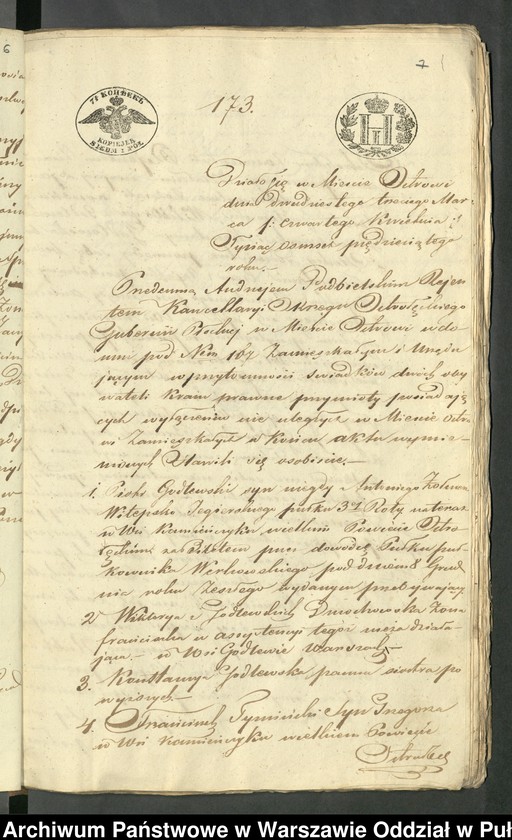 6
7
7½ КОПѢЕКЪ
KOPIEJEK
SIEDM I PÓŁ
173.
Działo się w Mieście Ostrowi
dnia dwudziestego trzeciego Mar-
ca /: czwartego Kwietnia :/
Tysiąc osmset pięćdziesiątego
roku.-
Przedemną Andrzejem Podbielskim Rejen-
tem Kancellaryi Okręgu Ostrołęckiego
Gubernii Płockiej w Mieście Ostrowi w do-
mu pod Nrem 167 Zamieszkałym i Urzędu-
jącym w przytomności świadków dwóch oby-
wateli kraju prawne przymioty posiadają-
cych wyłączeniu nie uległych w Mieście Ostro-
wi Zamieszkałych w końcu aktu wymie-
nionych Stawili się osobiście.-
1. Piotr Godlewski syn niegdy Antoniego Żołnierz
Witepsko Jegierskiego pułku 3ej Roty na teraz
w Wsi Kamieńczyku wielkim Powiecie Ostro-
łęckim za Biletem przez dowódcę Pułku puł-
kownika Werhowskiego pod dniem 8 Grud
nia roku Zeszłego wydanym przebywający
2. Wiktorya z Godlewskich Dmochowska żona
franciszka w assystencyi tegoż męża działa-
jąca - w Wsi Godlewie
3. Konstancya Godlewska panna siostra po
wyższych -
4. Franciszek Tymiński Syn Grzegorza
w Wsi Kamieńczyku wielkiem Powiecie
Ostrołęc
Archiwum Państwowe w Warszawie Oddział w Puł